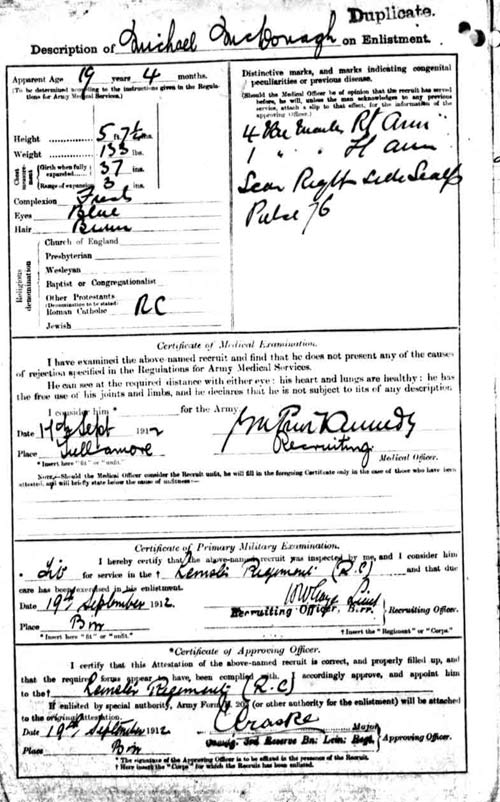 Duplicate.
Description of Michael McDonagh on Enlistment.
Apparent Age 19 years 4 months.
(To be determined according to the instructions given in the Regulations for Army Medical Services.)
Height 5 ft. 7½ ins.
Weight 133 lbs.
Chest measurement
Girth when fully expanded 37 ins.
Range of expansion 3 ins.
Complexion Fresh
Eyes Blue
Hair Brown
Religious denomination
Church of England
Presbyterian
Wesleyan
Baptist or Congregationalist
Other Protestants
(Denomination to be stated)
Roman Catholic RC
Jewish
Distinctive marks, and marks indicating congenital peculiarities or previous disease.
(Should the Medical Officer be of opinion that the recruit has served before, he will, unless the man acknowledges to any previous service, attach a slip to that effect, for the information of the approving Officer.)
4 Vac marks Rt Arm
1 " " arm
Scar Right side Scalp
Pulse 76
Certificate of Medical Examination.
I have examined the above-named recruit and find that he does not present any of the causes
of rejection specified in the Regulations for Army Medical Services.
He can see at the required distance with either eye; his heart and lungs are healthy; he has
the free use of his joints and limbs, and he declares that he is not subject to fits of any description.
I consider him * for the Army
Date 17th Sept 1912
Kennedy
Place Tullamore
Recruiting Medical Officer.
* Insert here "fit" or "unfit."
NOTE.—Should the Medical Officer consider the Recruit unfit, he will fill in the foregoing Certificate only in the case of those who have been
attested, and will briefly state below the cause of unfitness:—
Certificate of Primary Military Examination.
I hereby certify that the above-named recruit was inspected by me, and I consider him
* Fit for service in the † Leinster Regiment (R.C) and that due
care has been exercised in his enlistment.
Date 19th September 1912
Place Birr
Recruiting Officer, Birr. Recruiting Officer.
* Insert here "fit" or "unfit."
† Insert the "Regiment" or "Corps."
*Certificate of Approving Officer.
I certify that this Attestation of the above-named recruit is correct, and properly filled up, and
that the required forms appear to have been complied with. I accordingly approve, and appoint him
to the† Leinster Regiment (R.C)
If enlisted by special authority, Army Form B. 203 (or other authority for the enlistment) will be attached
to the original attestation.
Date 19th September 1912
Major
Place Birr
Comdg. 3rd Reserve Bn: Lein: Regt. Approving Officer.
* The signature of the Approving Officer is to be affixed in the presence of the Recruit.
† Here insert the "Corps" for which the Recruit has been enlisted.